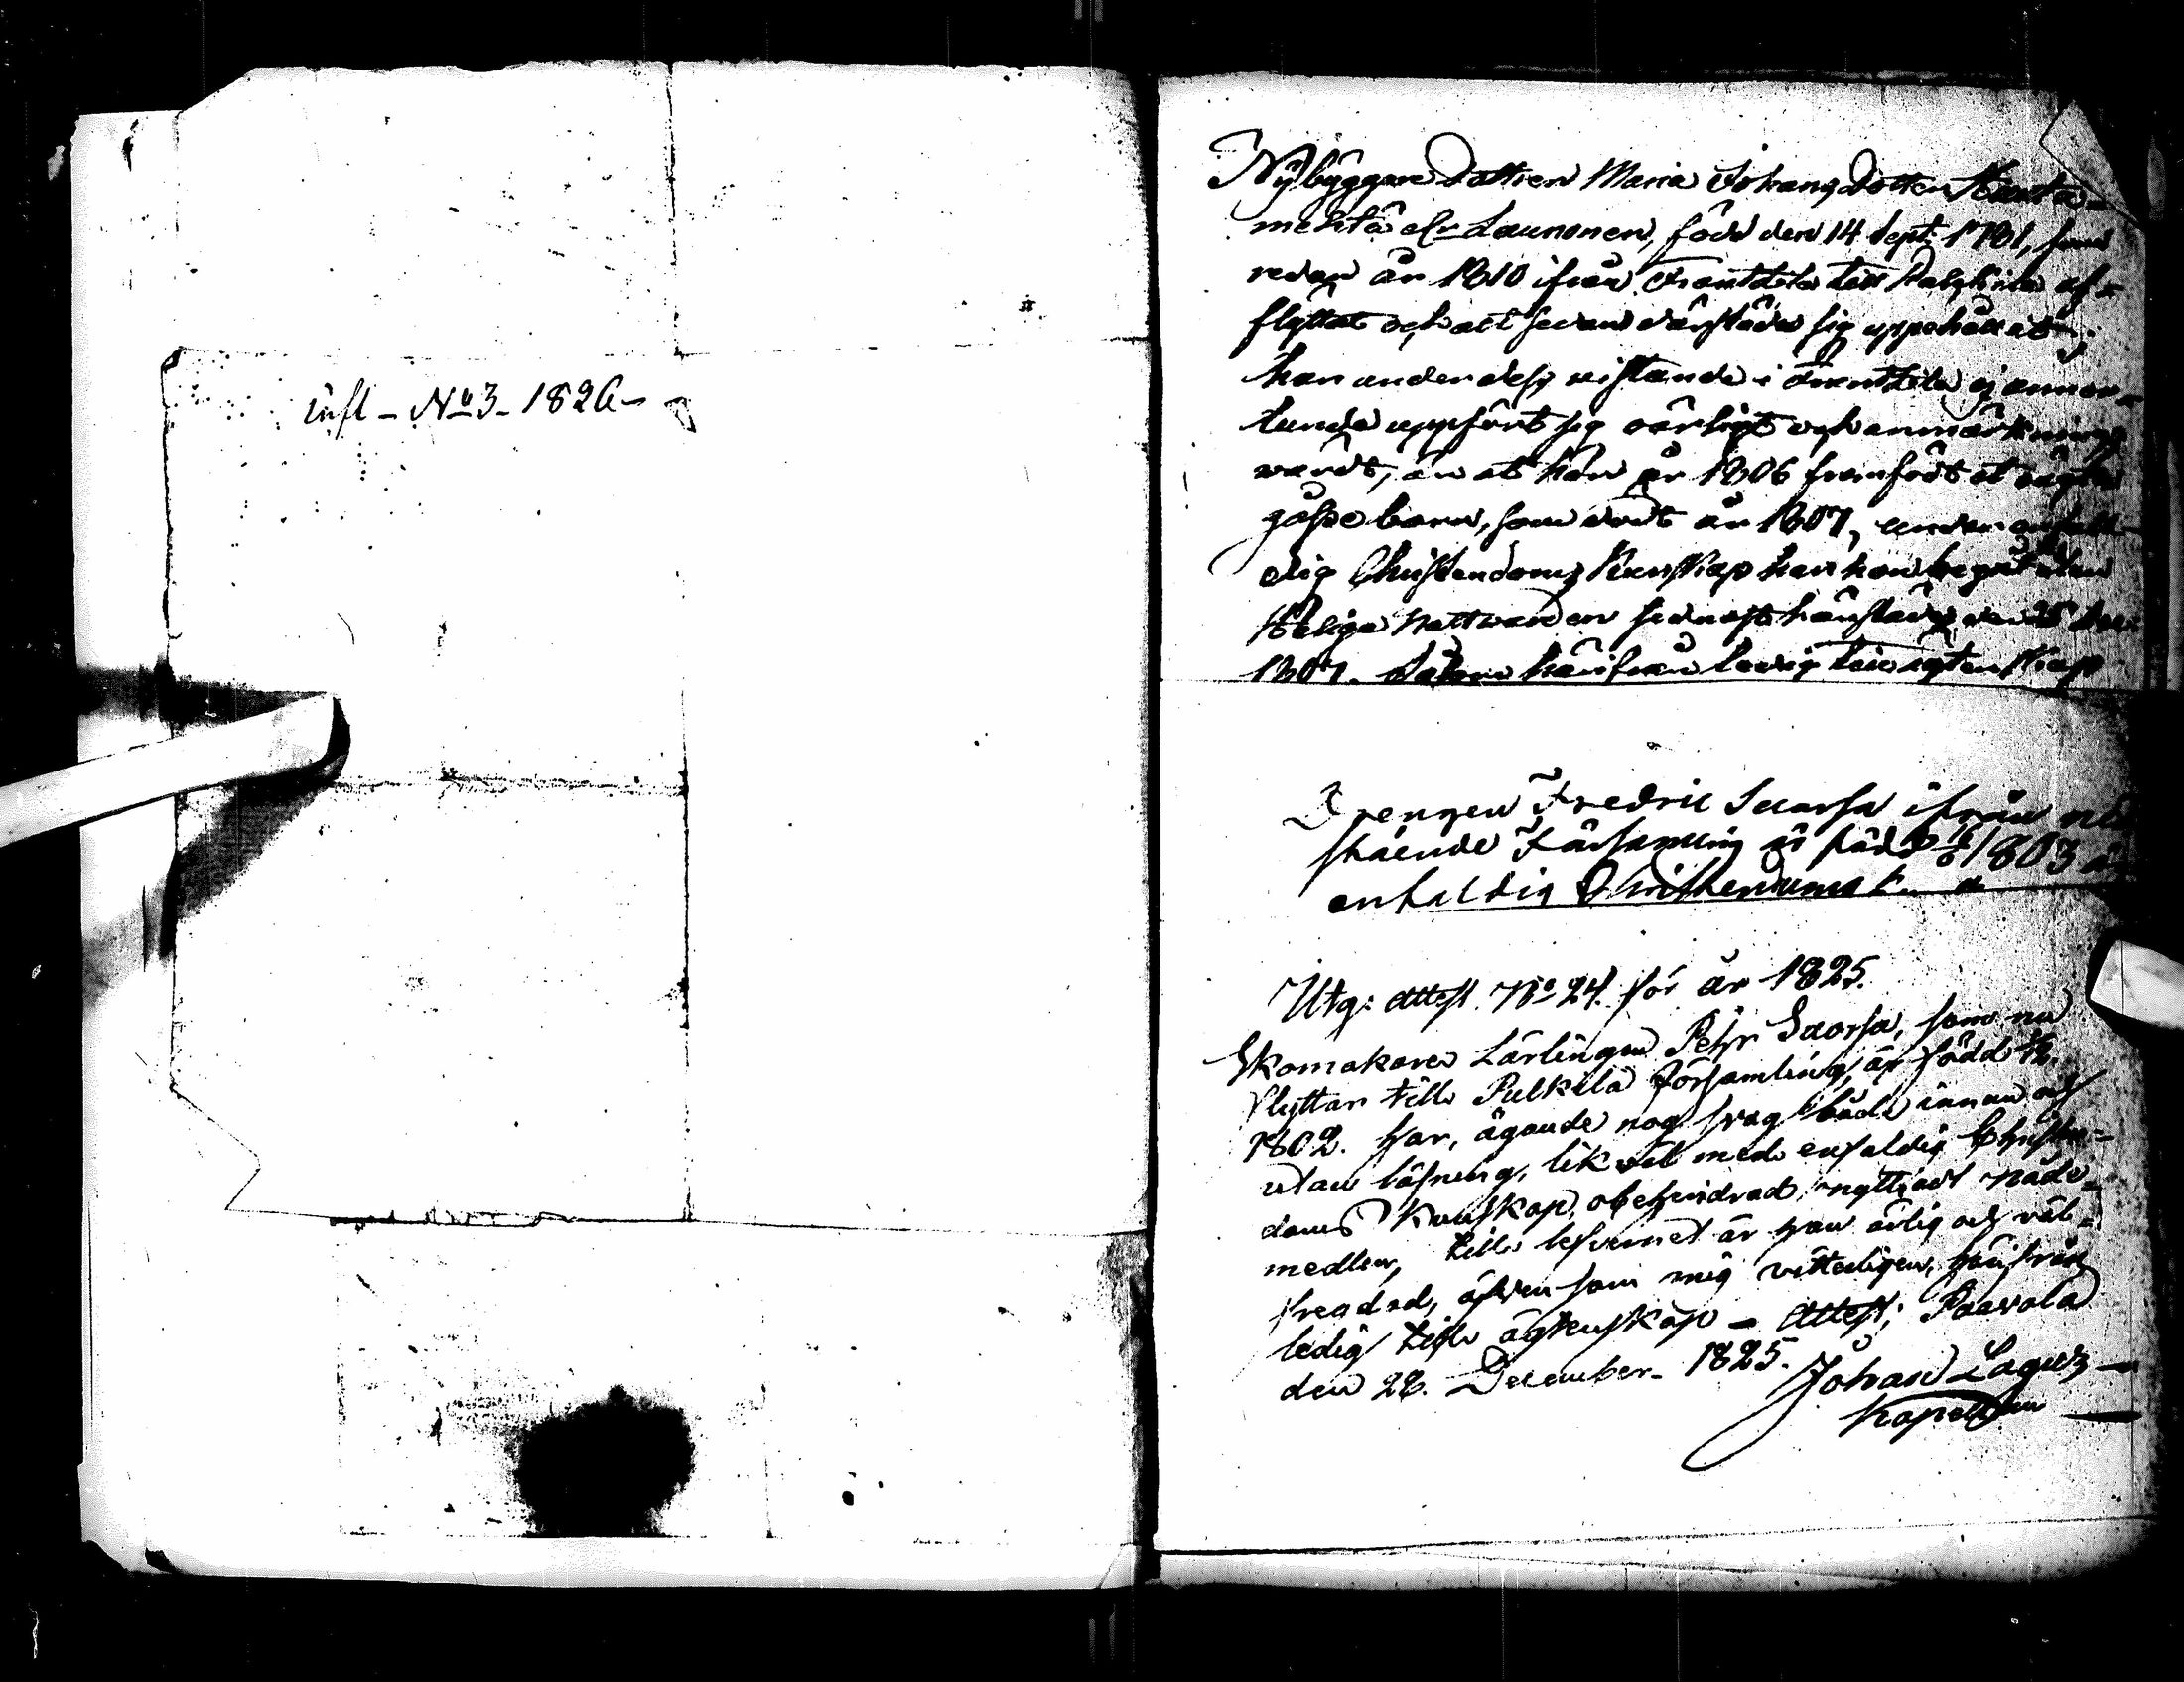 infl - No 3 - 1826 -
Nybyggare Dottren Maria Johans Dotter
mehtä elr Launonen, född den 14 Sept. 1781, som
redan år 1810 ifrån Frantzila till Pulkila af-
flyttat och alt sedan därstädes sig uppehållit;
har under dess vistande i Frantzila ej annor-
lunda uppfört sig än at hon år 1806 framfödt et oägta
gosse barn, som dödt år 1807, under enfall-
dig Christendoms Kunskap har hon begått den
Heliga Nattvarden sednast härstädes den 25
1807. härifrån ledig till ägtenskap
Drengen Fredric Saarsa ifrån
stående Församling är född 1803
enfaldig Christendoms
Utg: attest No 24. för år 1825.
Skomakare Lärlingen Pehr Saarsa, som nu
flyttar till Pulkila församling, är född
1802. Har, ägande nog svag både innan och
utan läsning, lik väl med enfaldig Christen-
doms Kunskap, obehindrad nyttjadt nåde-
medlen, till lefvernet är han ärlig och väl-
freadad, äfven som mig vitterligen, härifrån
ledig till ägtenskap - Attest; Paavola
den 28. December - 1825.
Johan Lagus -
Kapellan